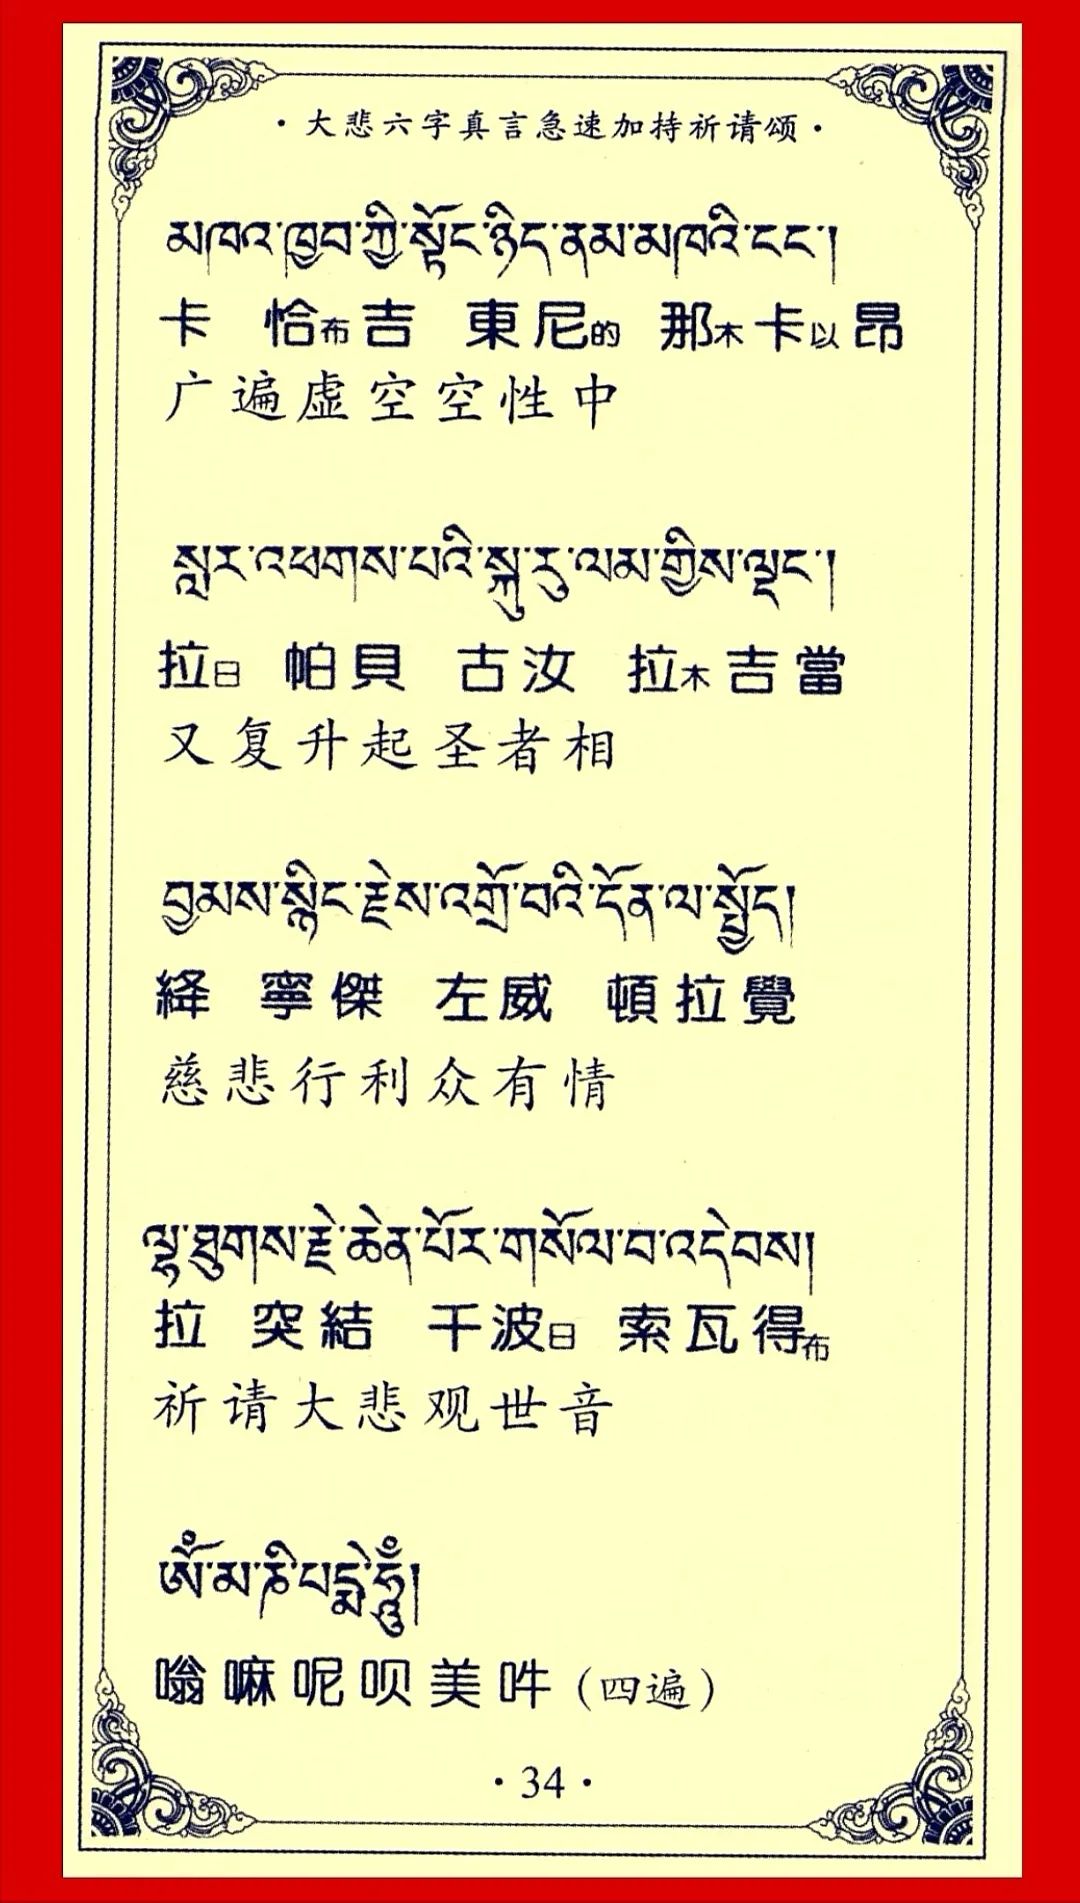 ·大悲六字真言急速加持祈请颂·
མཁའ་ཁྱབ་ཀྱི་སྟོང་ཉིད་ནམ་མཁའི་ངང་།
卡 恰布吉 東尼的 那木卡以昂
广遍虚空空性中
སླར་འཕགས་པའི་སྐུ་རུ་ལམ་གྱིས་ལྡང་།
拉日 帕貝 古汝 拉木吉當
又复升起圣者相
བྱམས་སྙིང་རྗེས་འགྲོ་བའི་དོན་ལ་སྤྱོད།
絳 寧傑 左威 頓拉覺
慈悲行利众有情
ལྷ་ཐུགས་རྗེ་ཆེན་པོར་གསོལ་བ་འདེབས།
拉 突結 千波日 索瓦得布
祈请大悲观世音
ཨོཾ་མ་ཎི་པདྨེ་ཧཱུྃ།
嗡嘛呢呗美吽（四遍）
·34·